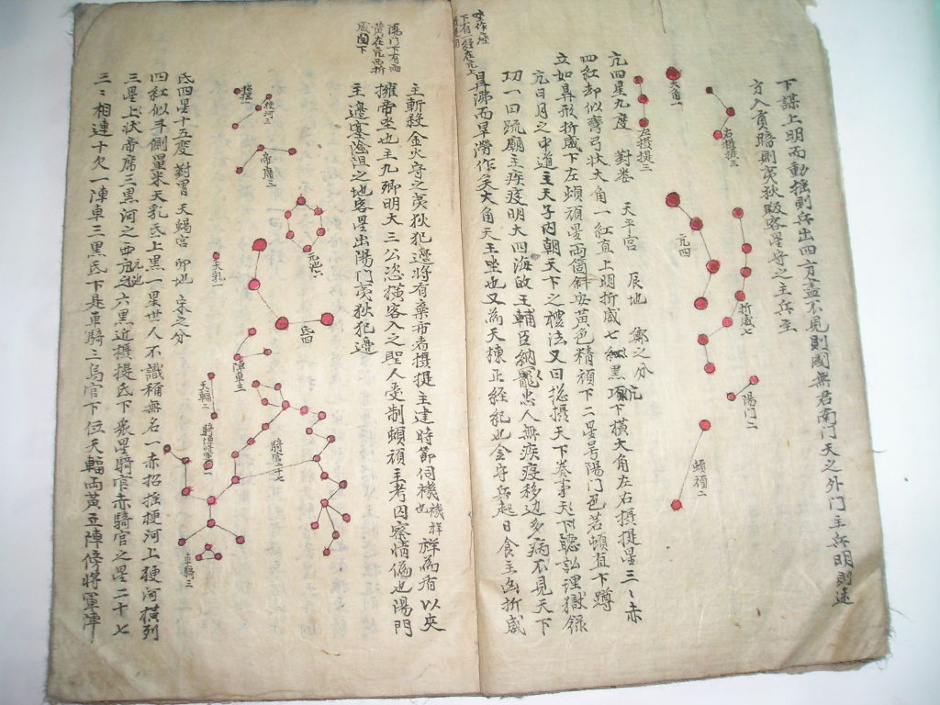 下謀上明而動搖則兵出四方盡不見則國無君南門天之外門主兵明則遠
方入貢暗則夷狄畈客星守之主兵至
大角一
左攝提三
右攝提三
亢四
折威七
陽門二
頓頑二
亢四星九度 對婁 天平宮 辰地 鄭之分
四红却似彎弓狀大角一红直上明折威七黑下横大角左右攝提星三〻赤
立如鼎形折威下左頓頑星两箇斜安黄色精頑下二星号陽門色若頓直下蹲
亢日月之中道主天子内朝天下之禮法又曰捴攝天下奏事天下聽訟理獄録
功一曰䟽廟主疾疫明大四海王輔臣納忠人無疾疫移边多病不見天下
鼎沸而旱澇作矣大角天王坐也又為天棟正經紀也金守兵起日食主凶折威
坐作座
陽門下有两
黄在亢西折
威下
主斬殺金火守之夷狄犯邉將有棄市者攝提主建時節伺禨祥也為盾以夾
擁帝坐也主九卿明大三公恣横客入之聖人受制頓頑主考囚察情偽也陽門
主邉塞險阻之地客星出陽門夷狄犯邉
招摇一
梗河三
帝席三
亢池六
天乳一
氐四
陣車三
天輻二
騎陣將軍一
騎官二十七
車騎三
氐四星十五度 對胃 天蝎宫 卯地 宋之分
四红似斗側量米天乳氐上黑一星世人不識稱無名一赤招摇梗河上梗河横列
三星上狀帝席三黑河之西亢池六黑近攝提氐下衆星騎官赤騎官之星二十七
三〻相連十欠一陣車三黑氐下是車騎三烏官下位天輻两黄立陣傍將軍陣